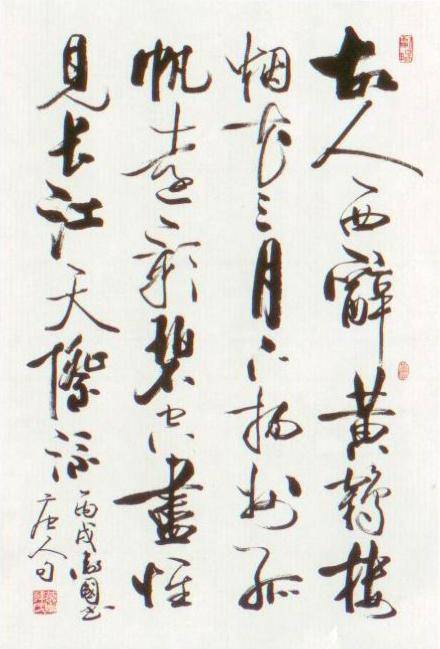 古人西辭黄鹤楼
烟花三月下扬州孤
帆遠影碧空盡惟
見长江天際流
丙戌國书
唐人句